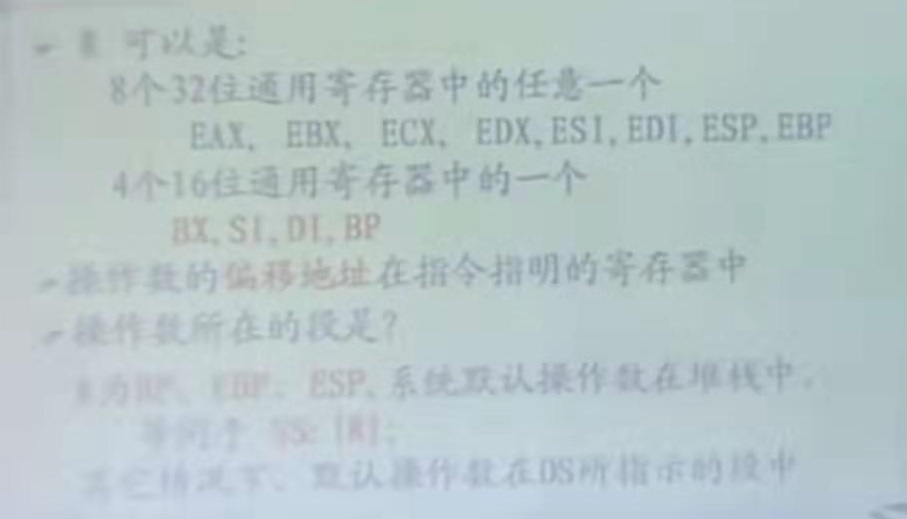 R 可以是:
8个32位通用寄存器中的任意一个
EAX, EBX, ECX, EDX,ESI,EDI,ESP,EBP
4个16位通用寄存器中的一个
BX,SI,DI,BP
操作数的偏移地址在指令指明的寄存器中
操作数所在的段是?
R为BP、EBP、ESP,系统默认操作数在堆栈中,
等同于 SS:[R];
其它情况下、默认操作数在DS所指示的段中